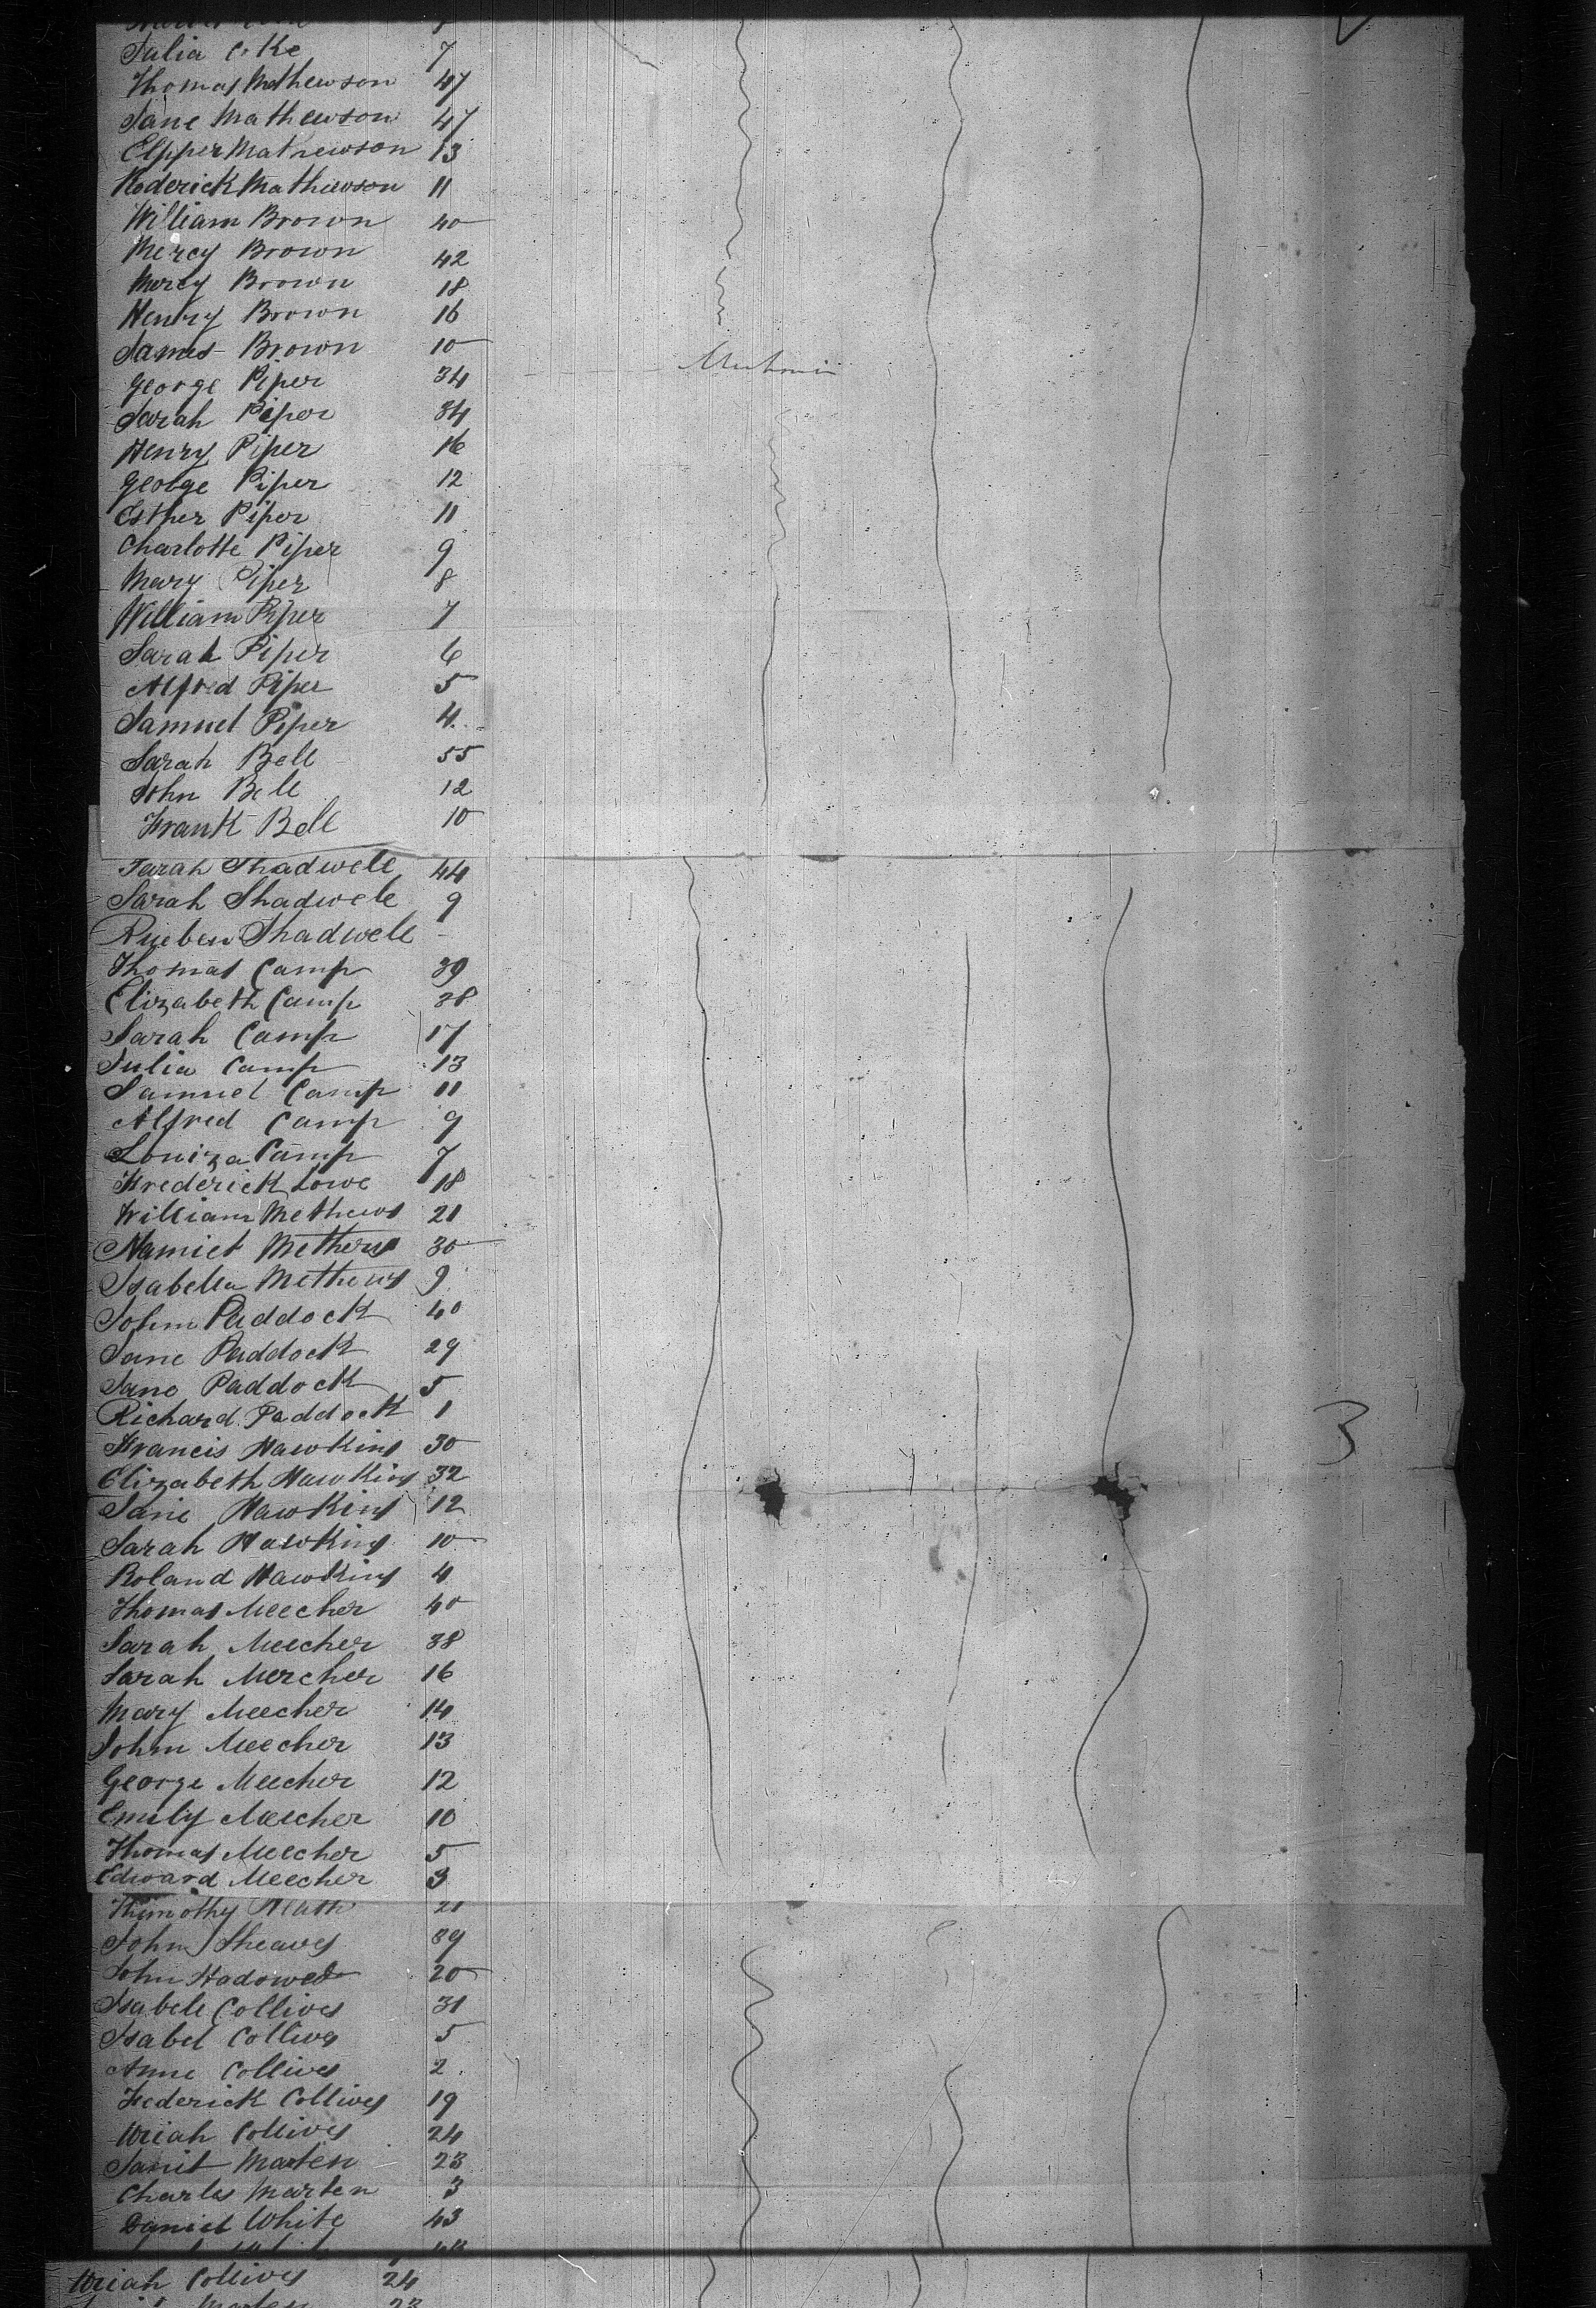 Julia Coke 7
Thomas Mathewson 47
Jane Mathewson 47
Elpper Mathewson 13
Roderick Mathewson 11
William Brown 40
Mercy Brown 42
Mercy Brown 18
Henry Brown 16
James Brown 10
George Piper 34
Sarah Piper 34
Henry Piper 16
George Piper 12
Esther Piper 11
Charlotte Piper 9
Mary Piper 8
William Piper 7
Sarah Piper 6
Alfred Piper 5
Samuel Piper 4
Sarah Bell 55
John Bell 12
Frank Bell 10
Sarah Shadwell 44
Sarah Shadwell 9
Rueben Shadwell -
Thomas Camp 39
Elizabeth Camp 38
Sarah Camp 17
Julia Camp 13
Samuel Camp 11
Alfred Camp 9
Louiza Camp 7
Frederick Lowe 18
William Methews 21
Methews 30
Isabella Methews 9
John Paddock 40
Jane Paddock 29
Jane Paddock 5
Richard Paddock 1
Francis Hawkins 30
Elizabeth Hawkins 32
Jane Hawkins 12
Sarah Hawkins 10
Roland Hawkins 4
3
Thomas Meecher 40
Sarah Meecher 38
Sarah Meecher 16
Mary Meecher 14
John Meecher 13
George Meecher 12
Emily Meecher 10
Thomas Meecher 5
Edward Meecher 3
Thimothy Heath 21
John Sheaves 39
John 20
Isabele Collives 31
Isabel Collives 5
Anne Collives 2
Federick Collives 19
Uriah Collives 24
Janit Marten 23
Charles Marten 3
Daniel White 43
Uriah Collives 24
Marten 23